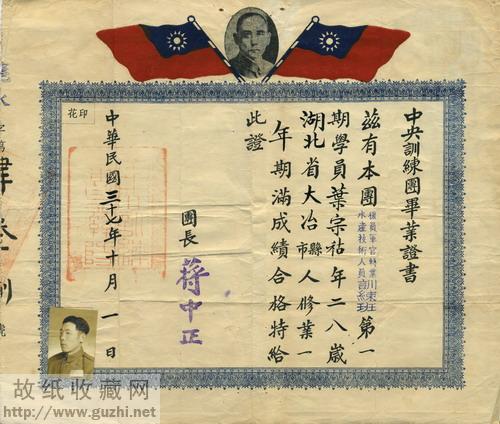 中央訓練團畢業證書
茲有本團復員軍官轉業川東班水產技術人員訓練班第一
期學員葉宗祜年二八歲
湖北省大冶縣市人修業一
年期滿成績合格特給
此證
團長 蔣中正
中華民國三十七年十月一日
印花
字第
號
故纸收藏网
http://www.guzhi.net